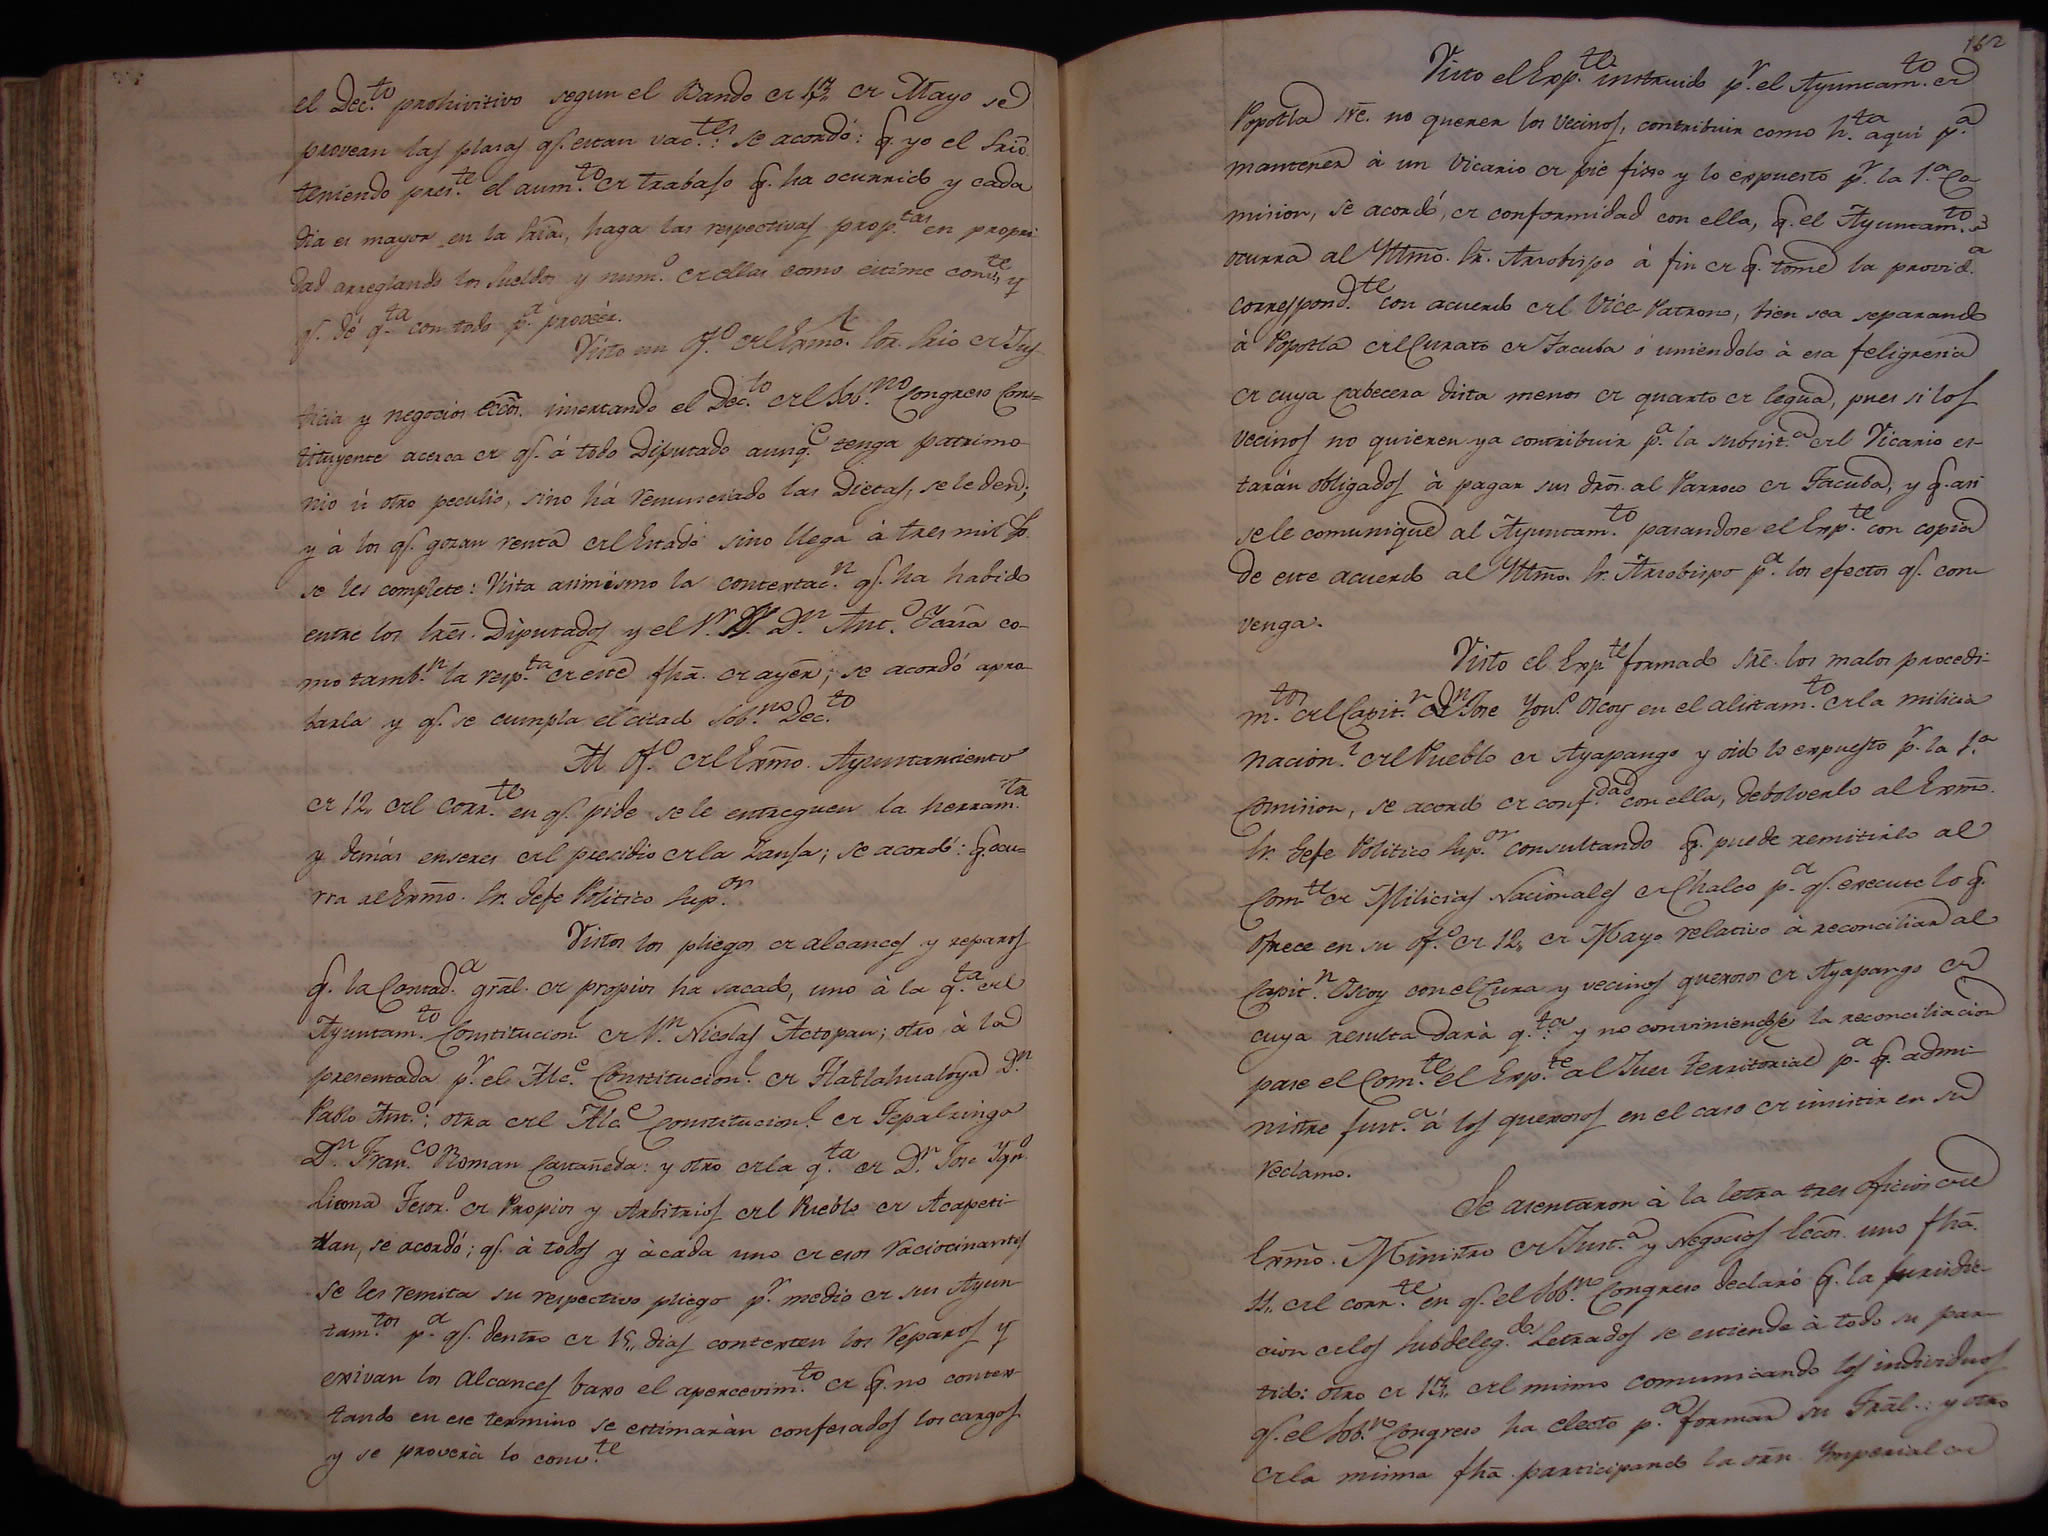 el Dec.to prohivitivo segun el Bando de 13, de Mayo se
provean las plasas qe. estan vac.tes: se acordó: q. yo el Srio.
teniendo pres.te el aum.to de trabajo q. ha ocurrido y cada
dia es mayor en la Sria, haga las respectivas prop.tas en propri
dad arreglando los sueldos y num.o de ellas como estime conv.te, y
qe. dé q.ta con todo p.a proveer.
Visto un Of.o del Exmo. Sor. Srio de Jus
ticia y negocios eccos. insertando el Dec.to del Sob.no Congreso Cons=
tituyente acerca de qe. á todo Diputado aunq.e tenga patrimo
nio ú otro peculio, sino há renunciado las Dietas, se le den;
y à los qe. gozan renta del Estado sino llega à tres mil p.
se les complete: Vista asimismo la contestac.n qe. ha habido
entre los Sres. Diputados y el Sr. D.n Ant.o Icaza co-
mo tamb.n la resp.ta de este fha. de ayer; se acordó apro-
barla y qe. se cumpla el citad Sob.no Dec.to
Al Of.o del Exmo. Ayuntamiento
de 12, del corr.te en qe. pide se le entreguen la herram.ta
y demás enseres del precidio de la Zanja; se acordó: q. ocu=
rra al Exmo. Sr. Gefe Politico Sup.or
Vistos los pliegos de alcances y reparos
q. la Contad.a gral. de propios ha sacado, uno à la q.ta del
Ayuntam.to Constitucion.l de S.n Nicolas Actopan; otro à la
presentada p.r el Alc.e Constitucion.l de Tlatlahualoya D.n
Pablo Ant.o; otra del Alc.e Constitucion.l de Tepalzingo
D.n Fran.co Roman Castañeda: y otro de la q.ta de D.n Jose Ygn.o
Licona Tesor.o de Propios y Arbitrios del Pueblo de Acapeti-
tlan, se acordó; qe. à todos y à cada uno de esos raciocinantes
se les remita su respectivo pliego p.r medio de sus Ayun
tam.tos p.a qe. dentro de 15, dias contexten los reparos y
exivan los alcances baxo el apercevim.to de q. no contex-
tando en ese termino se estimaràn confesados los cargos
y se proverà lo conv.te
162
Visto el Exp.te instruido p.r el Ayuntam.to de
Popotla sre. no querer los vecinos, contribuir como h.ta aquí p.a
mantener à un Vicario de pie fixo y lo expuesto p.r la 1.a Co-
mision, se acordó, de conformidad con ella, q. el Ayuntam.to
ocurra al Yltmo. Sr. Arzobispo à fin de q. tome la provid.a
correspond.te con acuerdo del Vice-Patrono, bien sea separando
à Popotla del Curato de Tacuba ó uniendolo à esa feligresia
de cuya Cabecera dista menos de quarto de legua, pues si los
vecinos no quieren ya contribuir p.a la subsist.a del Vicario es-
tarán obligados à pagar sus dros. al Parroco de Tacuba, y q. asi
se le comunique al Ayuntam.to pasandose el Exp.te con copia
de este acuerdo al Yltmo. Sr. Arzobispo p.a los efectos qe. con
venga.
Visto el Exp.te formado sre. los malos procedi-
m.tos del Capit.n D.n Jose Yon.o Oscoy en el alistam.to de la milicia
nacion.l del Pueblo de Ayapango y oido lo expuesto p.r la 1.a
Comision, se acordó de conf.dad con ella, debolverlo al Exmo.
Sr. Gefe Politico Sup.or consultando q. puede remitirlo al
Com.te de Milicias Nacionales de Chalco p.a qe. execute lo q.
ofrece en su of.o de 12, de Mayo relativo à reconciliar al
Capit.n Oscoy con el Cura y vecinos quexosos de Ayapango de
cuya resulta darà q.ta y no conviniendose la reconciliacion
pase el Com.te el Exp.te al Juez Territorial p.a q. admi-
nistre just.a á los quexosos en el caso de insistir en su
reclamo.
Se asentaron à la letra tres oficios del
Exmo. Ministro de Just.a y Negocios Eccos. uno fha.
11, del corr.te en qe. el Sob.no Congreso declaró q. la jurisdic-
cion de los Subdeleg.dos Letrados se estiende à todo su par-
tido: otro de 13, del mismo comunicando los individuos
qe. el Sob.no Congreso ha electo p.a formar su Tral.: y otro
de la misma fha. participando la orn. Ymperial de